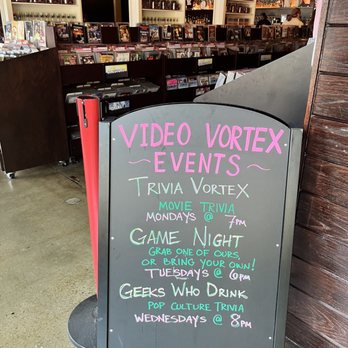 VIDEO VORTEX
~EVENTS~
TRIVIA VORTEX
MOVIE TRIVIA
MONDAYS @ 7PM
GAME NIGHT
GRAB ONE OF OURS,
OR BRING YOUR OWN!
TUESDAYS @ 6PM
GEEKS WHO DRINK
POP CULTURE TRIVIA
WEDNESDAYS @ 8PM